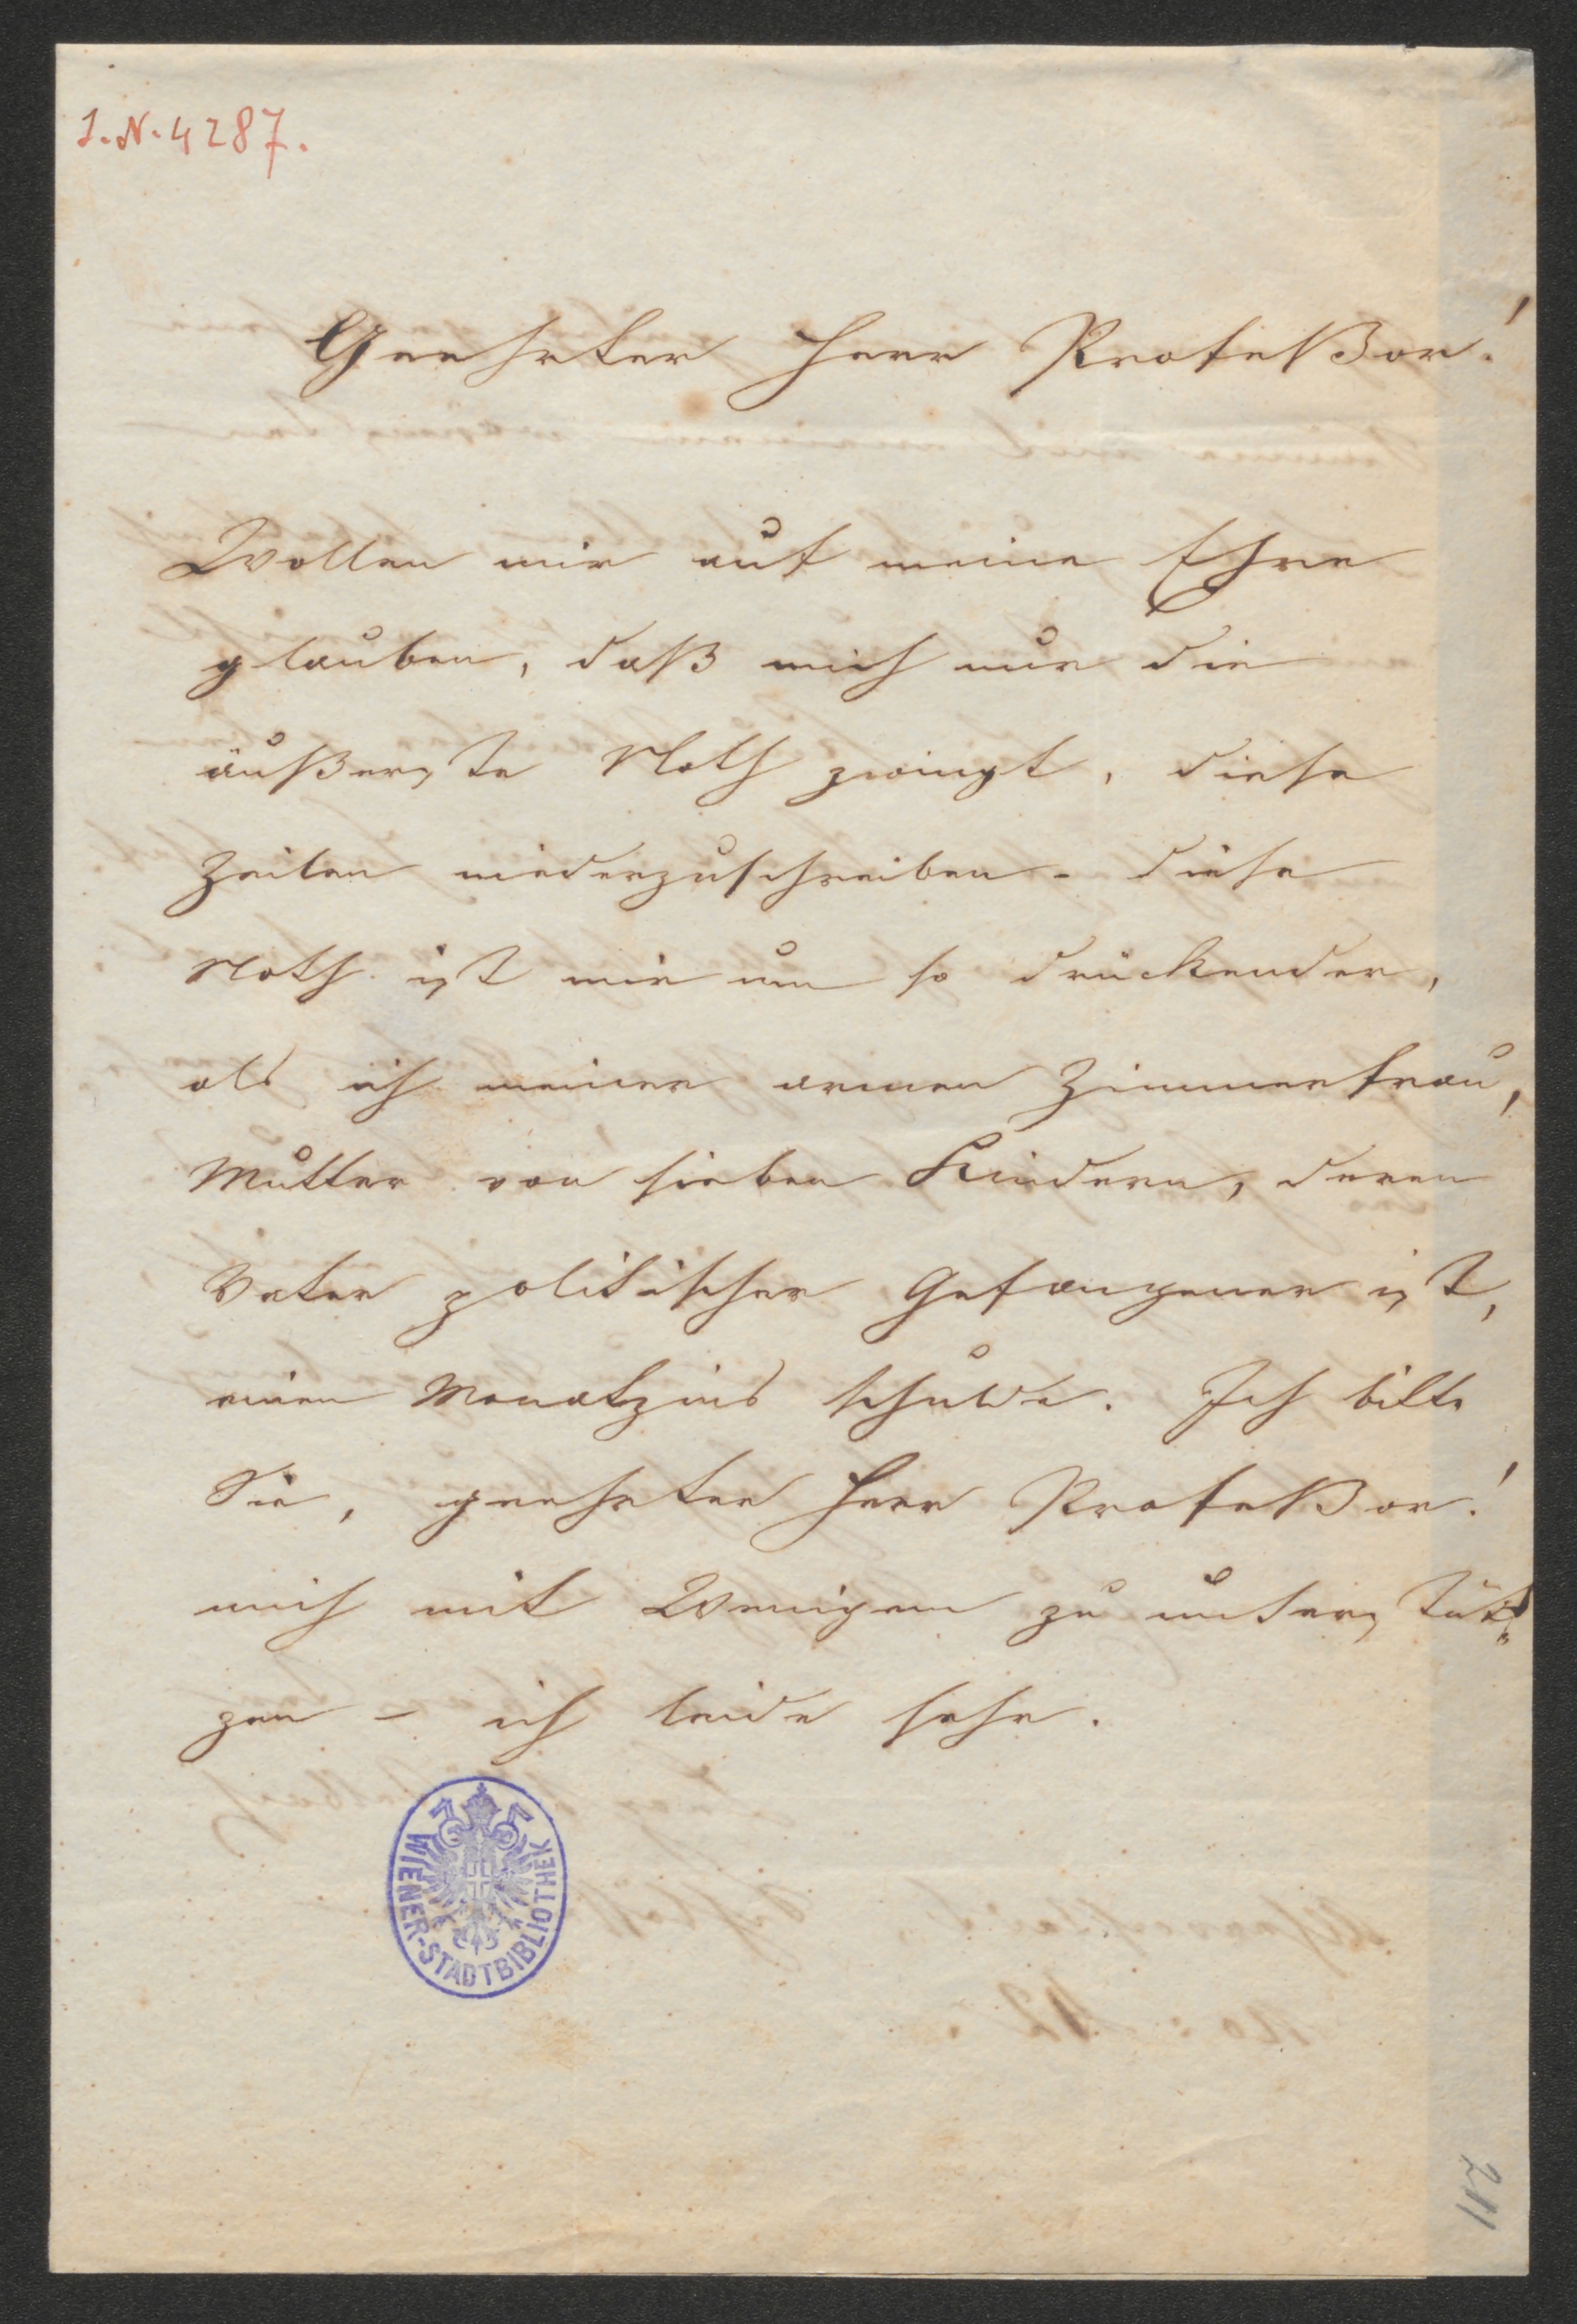 I. N. 4287.
Geehrter Herr Profeßor!
Wollen mir auf meine Ehre
glauben, daß mich nur die
äußerste Noth zwingt, diese
Zeilen niederzuschreiben - diese
Noth ist mir um so drückender,
als ich meiner armen Zimmerfrau,
Mutter von sieben Kindern, deren
Vater politischer Gefangener ist,
einen Monatzins schulde. Ich bitte
Sie, geehrter Herr Profeßor!
mich mit Wenigem zu unterstüt-
zen – ich leide sehr.
WIENER-STADTBIBLIOTHEK
211